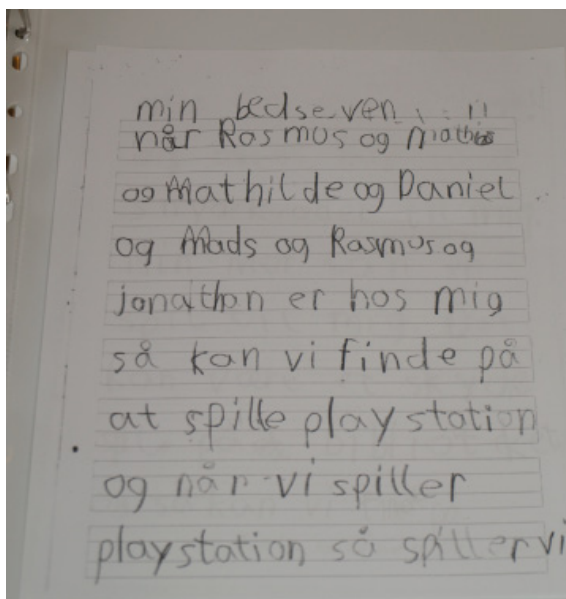 min bedse ven
når Rasmus og mathias
og Mathilde og Daniel
og Mads og Rasmus og
jonathon er hos mig
så kan vi finde på
at spille playstation
og når vi spiller
playstation så spiller vi